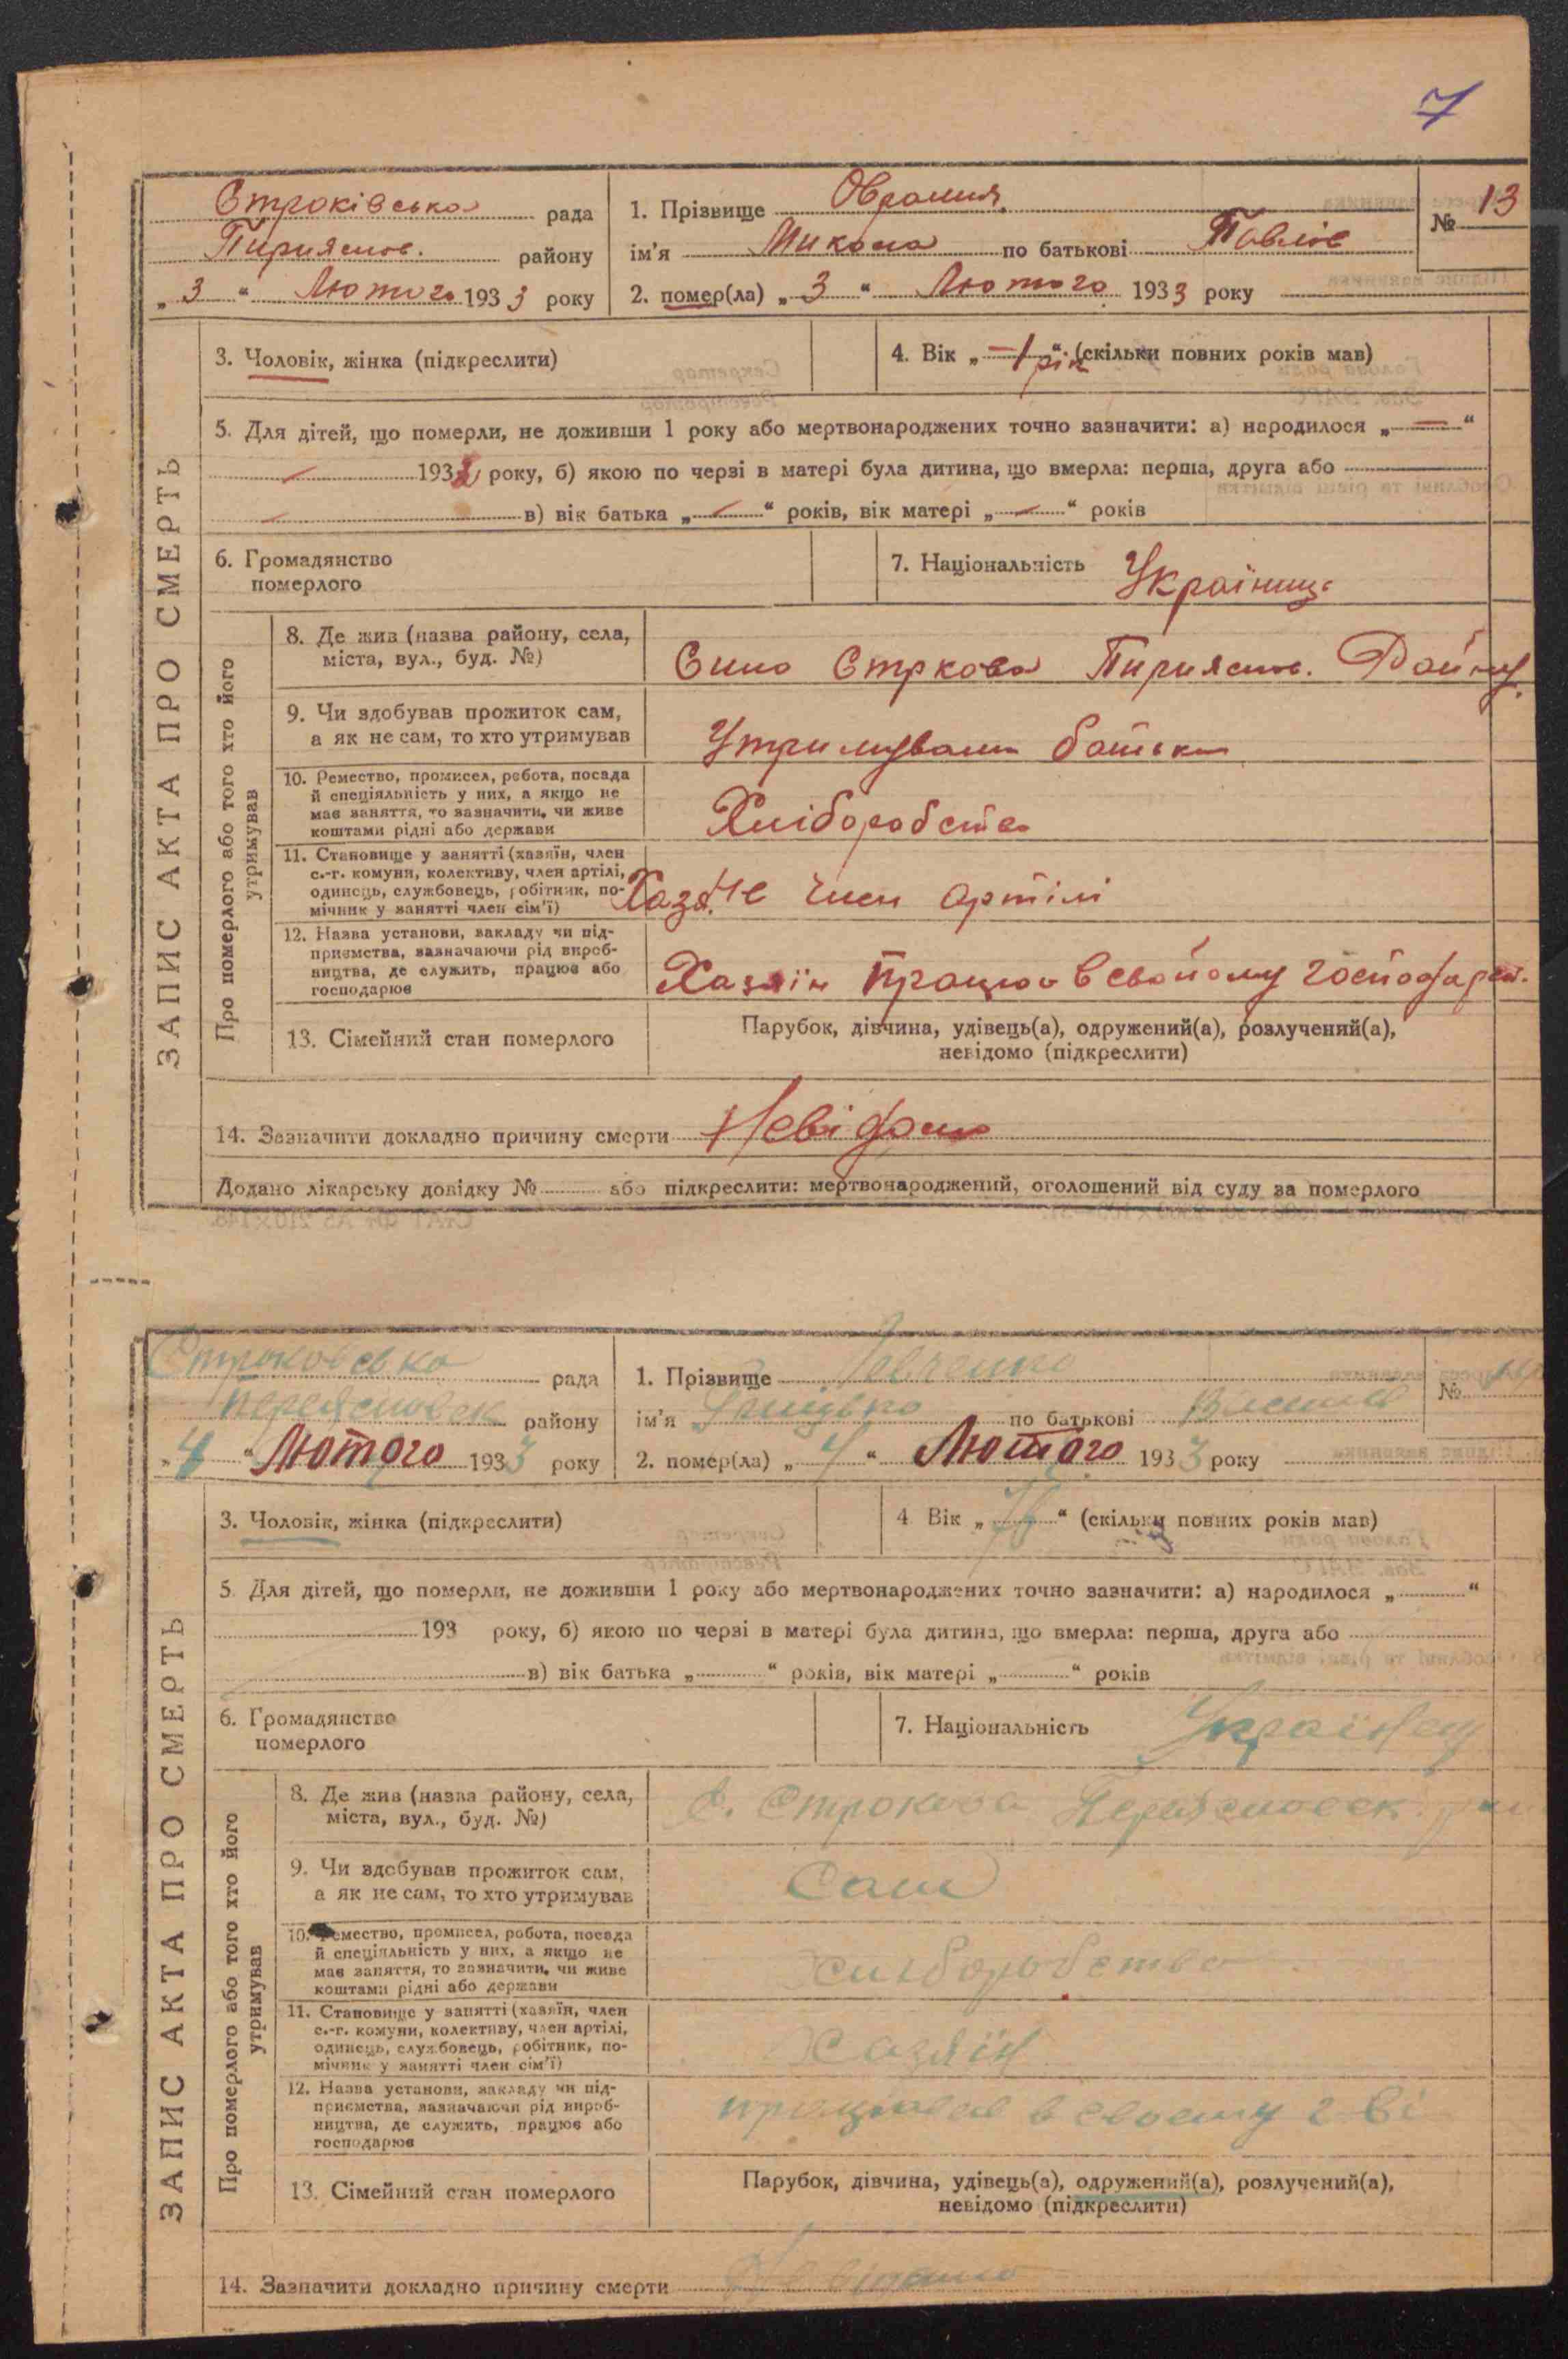 7
ЗАПИС АКТА ПРО СМЕРТЬ
Строківська рада
Пирияслов. району
„ 3 “ Лютого 1933 року
1. Прізвище
№ 13
ім'я Микола по батькові Павлов
2. помер(ла) „ 3 “ Лютого 1933 року
3. Чоловік, жінка (підкреслити)
4. Вік „ 1 “ рік (скільки повних років мав)
5. Для дітей, що померли, не доживши 1 року або мертвонароджених точно зазначити: а) народилося „ — “
193 року, б) якою по черзі в матері була дитина, що вмерла: перша, друга або
в) вік батька „ — “ років, вік матері „ — “ років
6. Громадянство
померлого
7. Національність Українець
Про померлого або того хто його
утримував
8. Де жив (назва району, села,
міста, вул., буд. №)
Пирияслов. Району
9. Чи здобував прожиток сам,
а як не сам, то хто утримував
Утримували батьки
10. Ремество, промисел, робота, посада
й спеціяльність у них, а якщо не
має заняття, то зазначити, чи живе
коштами рідні або держави
Хліборобство
11. Становище у занятті (хазяїн, член
с.-г. комуни, колективу, член артілі,
одинець, службовець, робітник, по-
мічник у занятті член сім'ї)
член артілі
12. Назва установи, закладу чи під-
приємства, зазначаючи рід вироб-
ництва, де служить, працює або
господарює
Хазяін працюв в свойому господарст.
13. Сімейний стан померлого
Парубок, дівчина, удівець(а), одружений(а), розлучений(а),
невідомо (підкреслити)
14. Зазначити докладно причину смерти Невідомо
Додано лікарську довідку № або підкреслити: мертвонароджений, оголошений від суду за померлого
ЗАПИС АКТА ПРО СМЕРТЬ
Строковська рада
Переясловск району
„ 4 “ Лютого 1933 року
1. Прізвище
№
ім'я по батькові
2. помер(ла) „ 4 “ Лютого 1933 року
3. Чоловік, жінка (підкреслити)
4. Вік „ “ (скільки повних років мав)
5. Для дітей, що померли, не доживши 1 року або мертвонароджених точно зазначити: а) народилося „ “
193 року, б) якою по черзі в матері була дитина, що вмерла: перша, друга або
в) вік батька „ “ років, вік матері „ “ років
6. Громадянство
померлого
7. Національність Українец
Про померлого або того хто його
утримував
8. Де жив (назва району, села,
міста, вул., буд. №)
с. Строкова Переясловск.
9. Чи здобував прожиток сам,
а як не сам, то хто утримував
Сам
10. Ремество, промисел, робота, посада
й спеціяльність у них, а якщо не
має заняття, то зазначити, чи живе
коштами рідні або держави
хліборобство
11. Становище у занятті (хазяїн, член
с.-г. комуни, колективу, член артілі,
одинець, службовець, робітник, по-
мічник у занятті член сім'ї)
хазяїн
12. Назва установи, закладу чи під-
приємства, зазначаючи рід вироб-
ництва, де служить, працює або
господарює
працював в своему г-ві
13. Сімейний стан померлого
Парубок, дівчина, удівець(а), одружений(а), розлучений(а),
невідомо (підкреслити)
14. Зазначити докладно причину смерти Невідомо